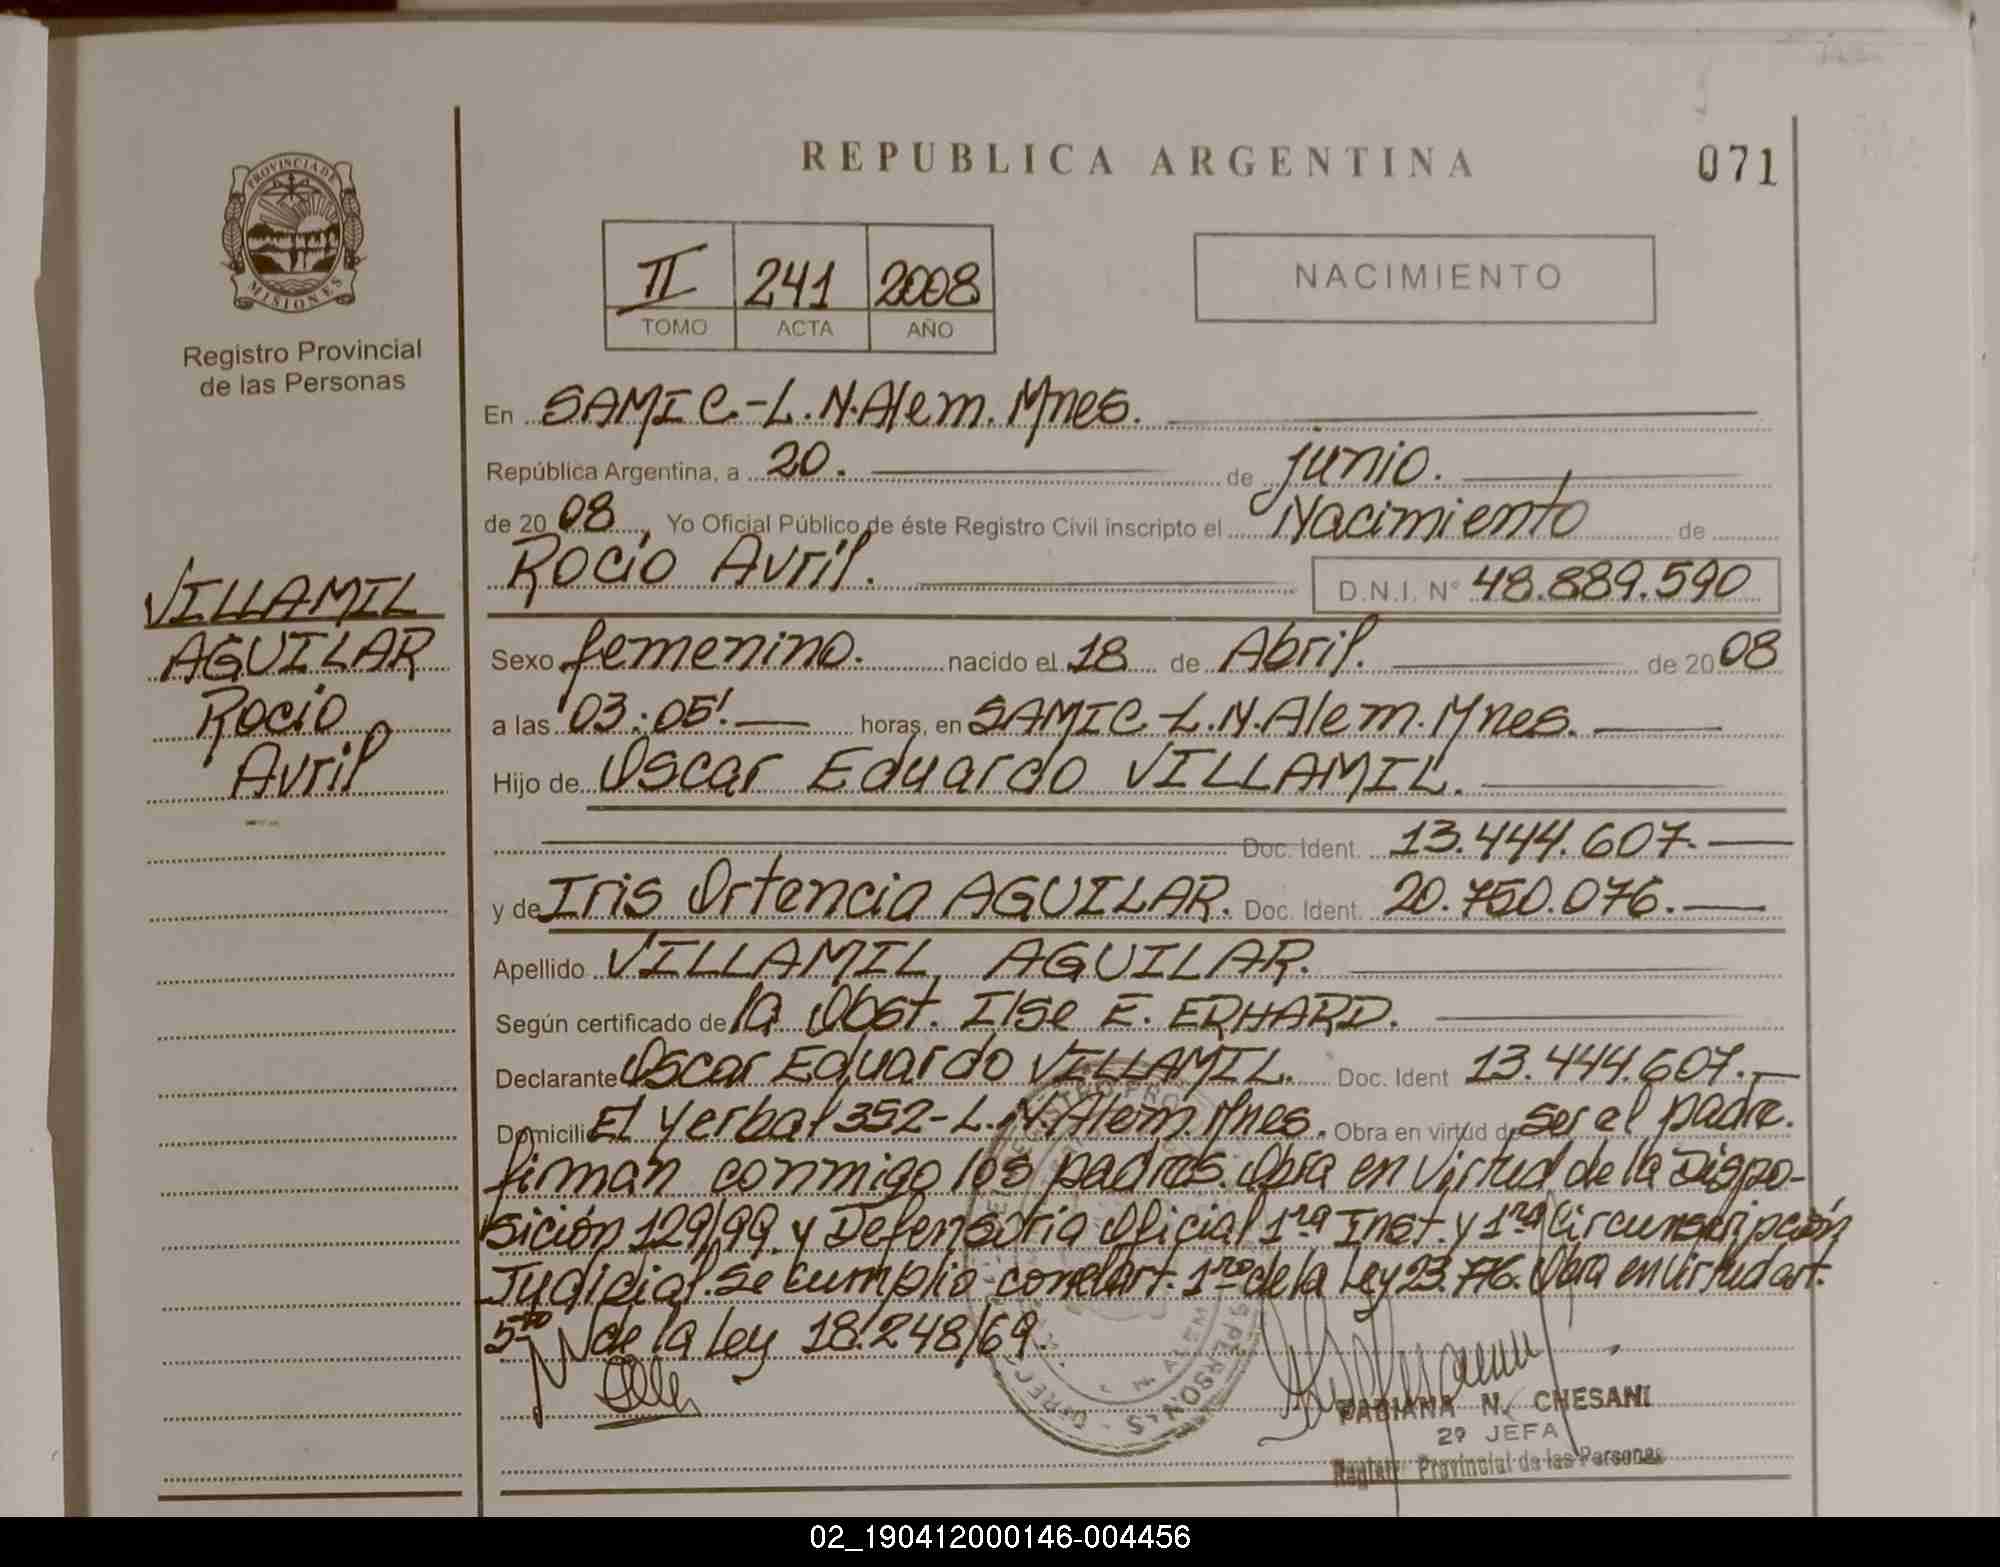 REPUBLICA ARGENTINA
071
PROVINCIA DE
MISIONES
Registro Provincial
de las Personas
II 241 2008
TOMO ACTA AÑO
NACIMIENTO
VILLAMIL
AGUILAR
Rocio
Avril
En SAMIC.-L.N.Alem.Mnes.
República Argentina, a 20. de junio.
de 20 08, Yo Oficial Público de éste Registro Civil inscripto el Nacimiento de
Rocio Avril. D.N.I. N° 48.889.590
Sexo femenino. nacido el 18 de Abril. de 20 08
a las 03:05'. horas, en SAMIC-L.N.Alem.Mnes.
Hijo de Oscar Eduardo VILLAMIL.
Doc. Ident. 13.444.607.
y de Iris Ortencia AGUILAR. Doc. Ident. 20.750.076.
Apellido VILLAMIL AGUILAR.
Según certificado de la Obst. Ilse E. ERHARD.
Declarante Oscar Eduardo VILLAMIL. Doc. Ident 13.444.607.
Domicilio El Yerbal 352-L.N.Alem.Mnes. Obra en virtud de ser el padre.
firman conmigo los padres. Obra en virtud de la Dispo-
sición 129/99 y Defensoria Oficial 1ra Inst. y 1ra Circunscripción
Judicial. Se cumplio con el art. 1ro de la Ley 23.776. Obra en virtud art.
5to de la Ley 18.248/69.
FABIANA N. CHESANI
2º JEFA
Registro Provincial de las Personas
02_190412000146-004456